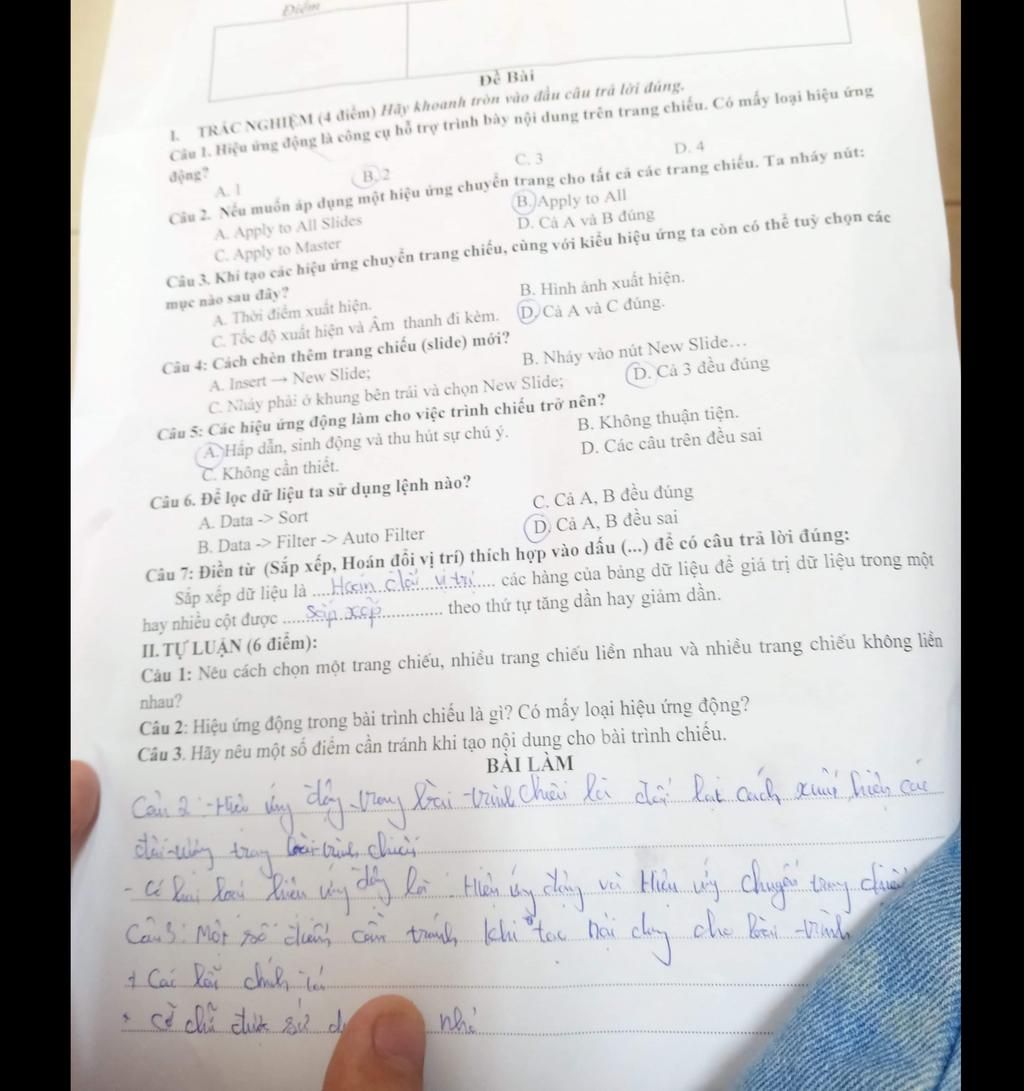 Điểm
Đề Bài
I. TRẮC NGHIỆM (4 điểm) Hãy khoanh tròn vào đầu câu trả lời đúng.
Câu 1. Hiệu ứng động là công cụ hỗ trợ trình bày nội dung trên trang chiếu. Có mấy loại hiệu ứng
động?
A. 1 B. 2 C. 3 D. 4
Câu 2. Nếu muốn áp dụng một hiệu ứng chuyển trang cho tất cả các trang chiếu. Ta nháy nút:
A. Apply to All Slides B. Apply to All
C. Apply to Master D. Cả A và B đúng
Câu 3. Khi tạo các hiệu ứng chuyển trang chiếu, cùng với kiểu hiệu ứng ta còn có thể tuỳ chọn các
mục nào sau đây?
A. Thời điểm xuất hiện. B. Hình ảnh xuất hiện.
C. Tốc độ xuất hiện và Âm thanh đi kèm. D. Cả A và C đúng.
Câu 4: Cách chèn thêm trang chiếu (slide) mới?
A. Insert → New Slide; B. Nháy vào nút New Slide…
C. Nháy phải ở khung bên trái và chọn New Slide; D. Cả 3 đều đúng
Câu 5: Các hiệu ứng động làm cho việc trình chiếu trở nên?
A. Hấp dẫn, sinh động và thu hút sự chú ý. B. Không thuận tiện.
C. Không cần thiết. D. Các câu trên đều sai
Câu 6. Để lọc dữ liệu ta sử dụng lệnh nào?
A. Data -> Sort C. Cả A, B đều đúng
B. Data -> Filter -> Auto Filter D. Cả A, B đều sai
Câu 7: Điền từ (Sắp xếp, Hoán đổi vị trí) thích hợp vào dấu (...) để có câu trả lời đúng:
Sắp xếp dữ liệu là ....Hoán đổi vị trí.... các hàng của bảng dữ liệu để giá trị dữ liệu trong một
hay nhiều cột được ......Sắp xếp............ theo thứ tự tăng dần hay giảm dần.
II. TỰ LUẬN (6 điểm):
Câu 1: Nêu cách chọn một trang chiếu, nhiều trang chiếu liền nhau và nhiều trang chiếu không liền
nhau?
Câu 2: Hiệu ứng động trong bài trình chiếu là gì? Có mấy loại hiệu ứng động?
Câu 3. Hãy nêu một số điểm cần tránh khi tạo nội dung cho bài trình chiếu.
BÀI LÀM
Câu 2: - Hiệu ứng động trong bài trình chiếu là cách xuất hiện các
đối tượng trong bài trình chiếu
- Có hai loại hiệu ứng động là: Hiệu ứng động và Hiệu ứng chuyển trang chiếu
Câu 3: Một số điểm cần tránh khi tạo nội dung cho bài trình
+ Các lỗi chính tả
+ Cỡ chữ được sử nhỏ